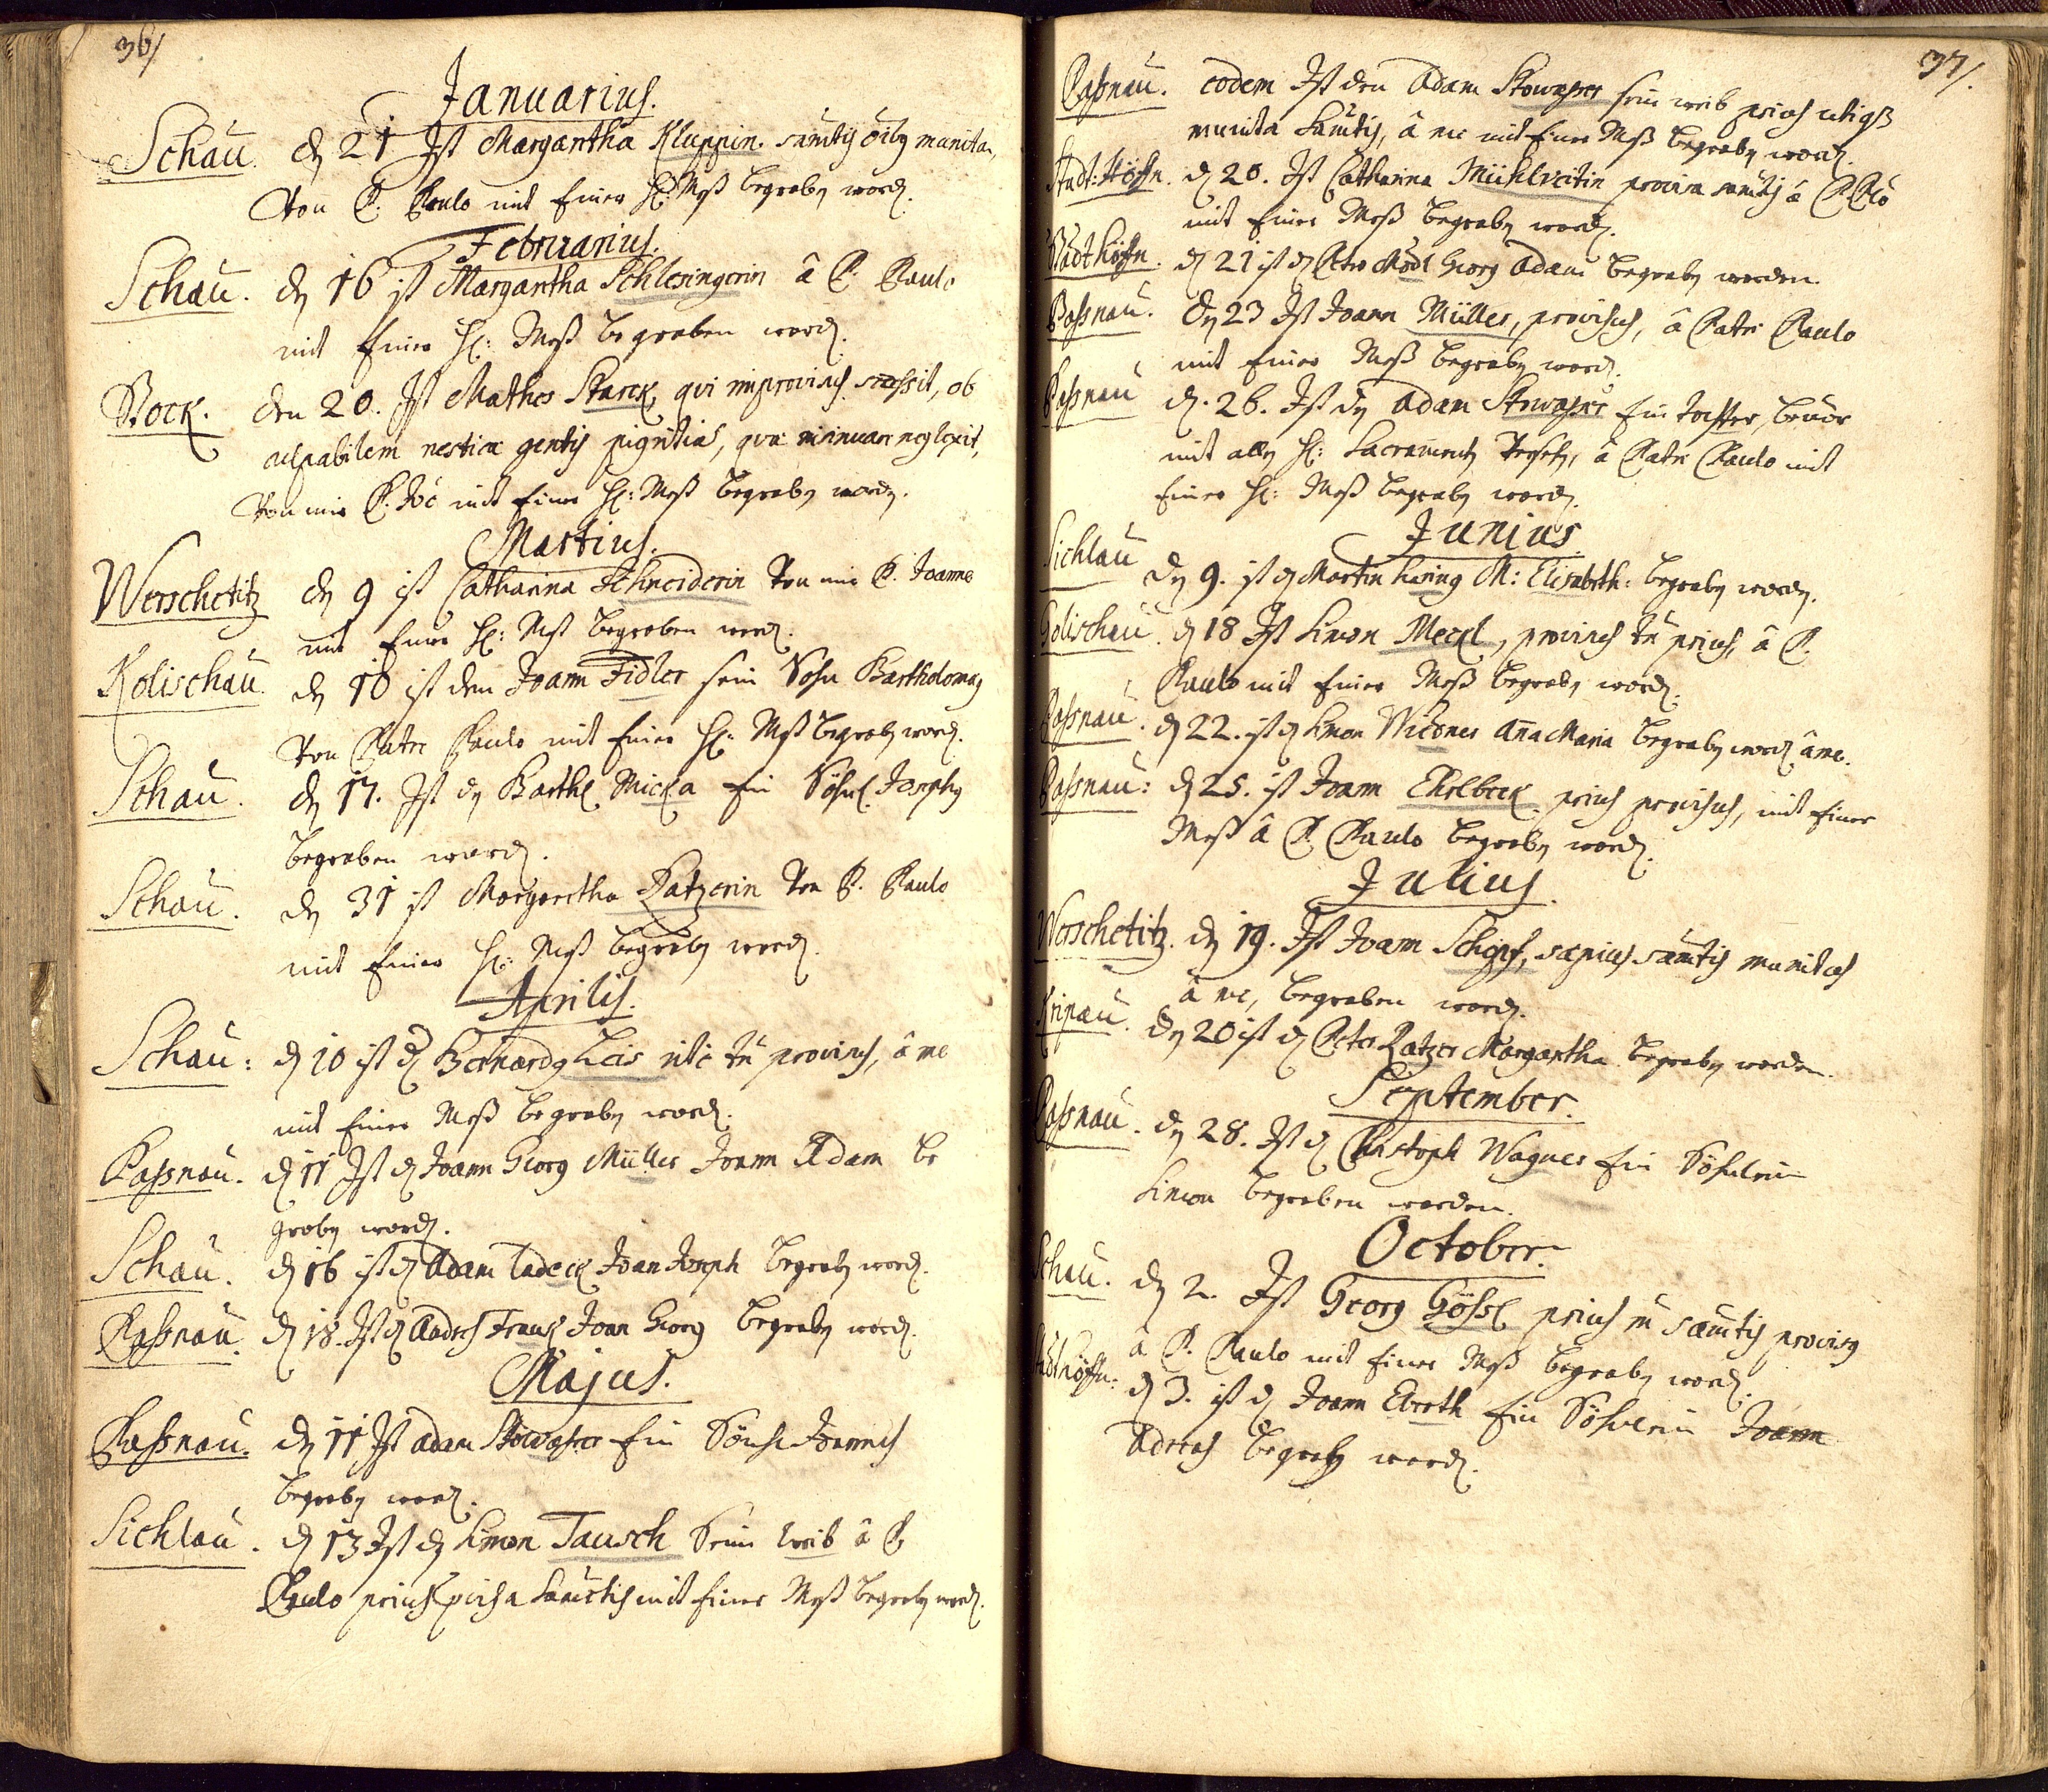 36/
Januarius.
Schau. dz 21 Ist Margaretha Kluppin. samtis oiby munita,
Von P. Paulo mit Einer H: Meß begraben word.
Februarius.
Schau. dz 16 ist Margaretha Schlesingerin â P. Paulo
mit Einer H: Meß begraben word.
Bock. den 20. Ist Mathes Starck, qvi improvisus, ob
culpabilem gentis pigritiã, neglexit,
Von mir P. Joê mit Einer H: Meß begraben worden.
Martius.
Werschetitz dz 9 ist Catharina Schneiderin Von mir P. Joanne
mit Einer H: Meß begraben word.
Kolischau. dz 10 ist dem Joann Fidler sein Sohn Bartholomaeus
Von Patre Paulo mit Einer H: Meß begraben word.
Schau. dz 17. Ist dz Barthl Micka Ein Söhnl. Josephus
begraben word.
Schau. dz 31 ist Margaretha Ratzerin Von P. Paulo
mit Einer H: Meß begraben word.
Aprilis.
Schau: d 10 ist d Bernardus Leis rite provisus, â me
mit Einer Meß begraben word.
Paßnau. d 11 Ist d Joann Georg Müller Joann Adam be
graben word.
Schau. d 16 ist d Adam Ladeck Joan Joseph begraben word.
Paßnau. d 18. Ist d Andres Frank Joan Georg begraben word.
Majus.
Paßnau. dz 11 Ist Adam Stowasser Ein Joannes
begraben word.
Sichlau. d 13 Ist dz Simon Tausch Sein weib â P.
Paulo prius mit Einer Meß begraben word.
37/.
Paßnau. eodem Ist den Adam Stowasser sein weib prius
munita Samtis, â me mit Einer Meß begraben word.
Stadt: Höfn. d 20. Ist Catharina Mühlveitin provisa samtis â P. Plo
mit Einer Meß begraben word.
Stadthöfn. d 21 ist d Peter Mödl Georg Adam begraben worden.
Paßnau. dz 23 Ist Joann Müller, provisus, â Patre Paulo
mit Einer Meß begraben word.
Paßnau d. 26. Ist dz Adam Stowasser Ein Tochter, bevor
mit allen H: Sacramenten Versehen, â Patre Paulo mit
Einer H: Meß begraben word.
Junius.
Sichlau dz 9. ist d Martin Hering M: Elisabeth: begraben worden.
Golischau. d 18 Ist Simon Meckl, provisus prius, â P.
Paulo mit Einer Meß begraben word.
Paßnau. d 22. ist d Simon Widner Aña Maria begraben word â me.
Paßnau: d 25. ist Joann Ehrlbeck prius provisus, mit Einer
Meß â P. Paulo begraben word.
Julius.
Werschetitz. dz 19. Ist Joann Schöpf, saepius samtis munitus
â me, begraben word.
Kripau. dz 20 ist d Peter Ratzer Margaretha begraben worden.
September.
Paßnau. dz 28. Ist d Christoph Wagner Ein Söhnlein
Simon begraben worden.
October.
Schau. dz 2. Ist Georg Gößl prius samtis provisus
â P. Paulo mit Einer Meß begraben word.
Stadthöfn: d 3. ist d Joann Ebroth Ein Söhnlein Joann
Adreas begraben word.